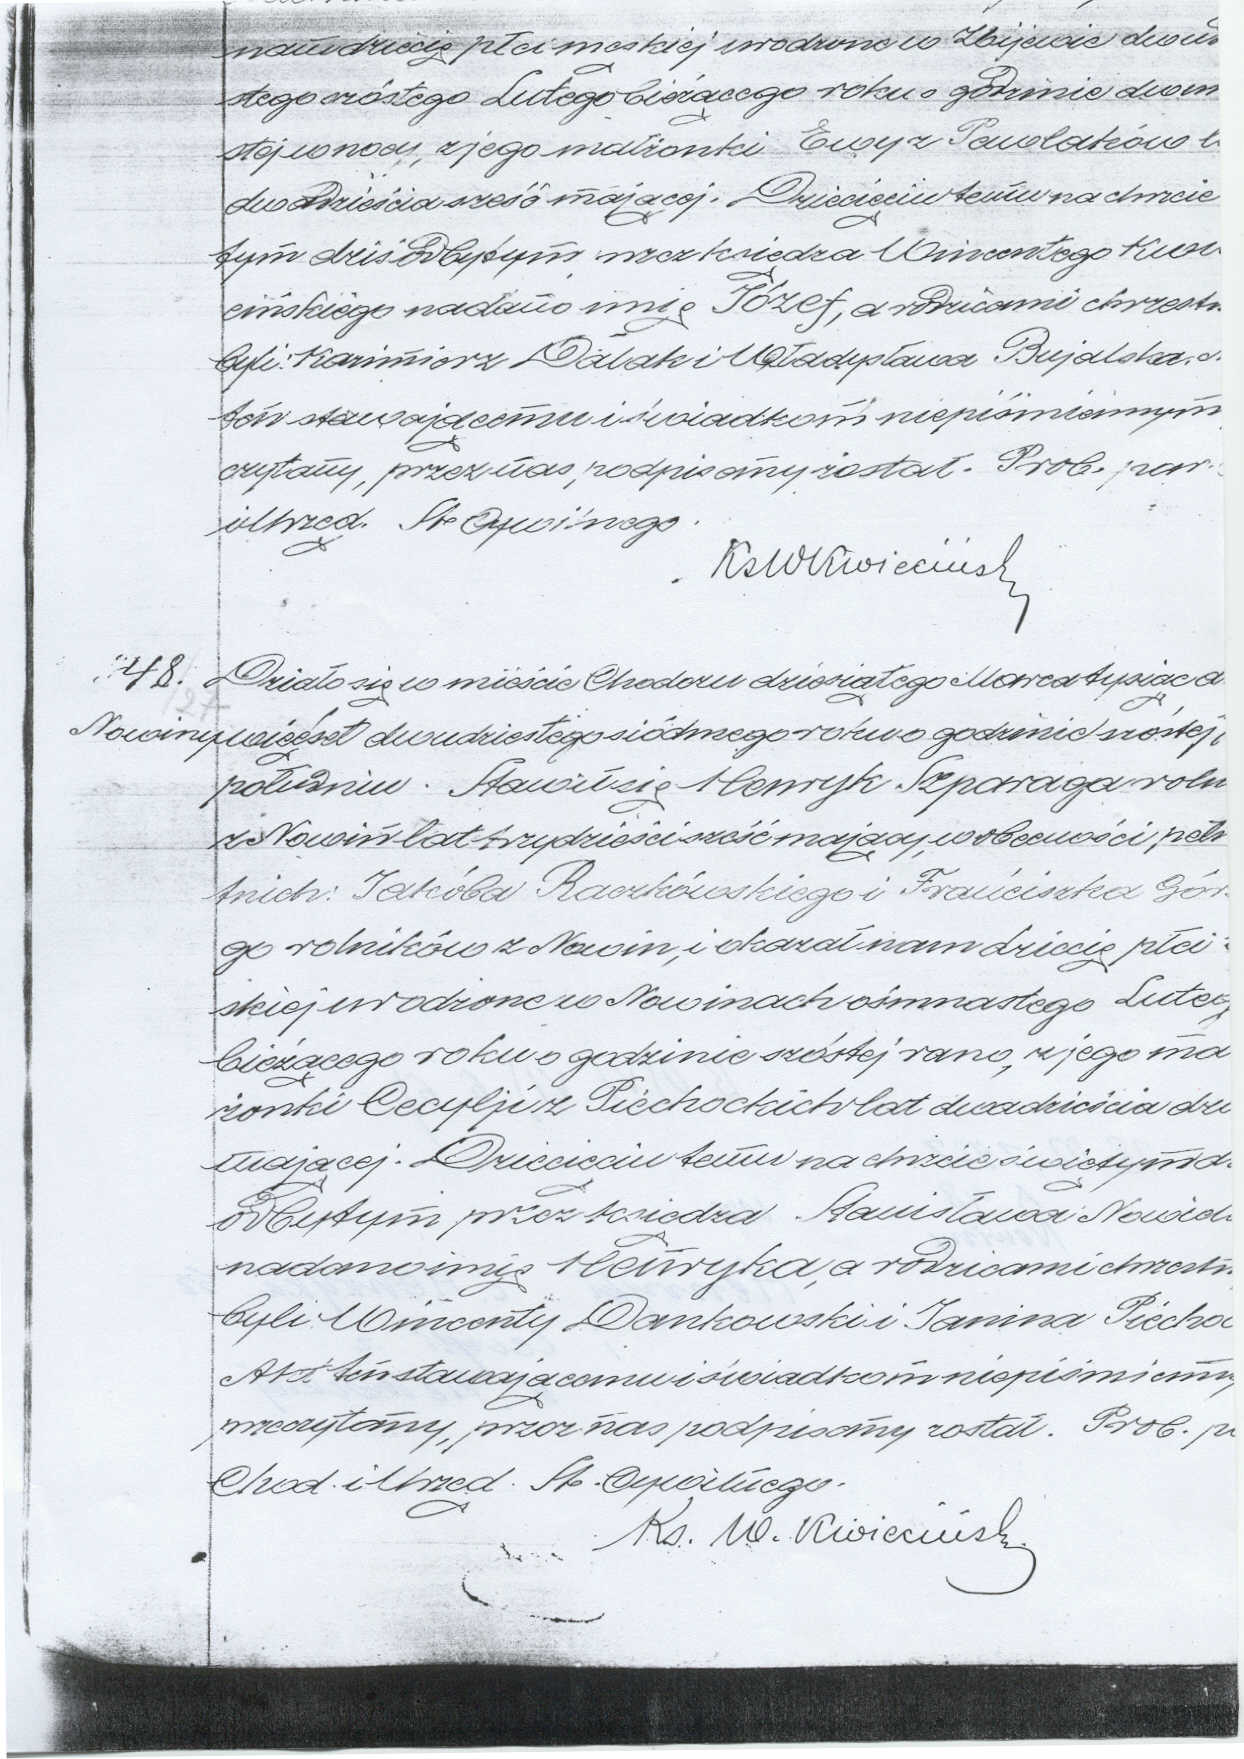 nam dziecię płci męskiej urodzone w Zbijewie dwu
stego szóstego Lutego bieżącego roku o godzinie dwun
stej w nocy, z jego małżonki Ewy z Pawlaków l
dwadzieścia sześć mającej. Dziecięciu temu na chrzcie
tym dziś odbytym przez księdza Wincentego Kwie
cińskiego nadano imię Józef, a rodzicami chrzestn
byli: Kazimierz Walak i Władysława Bujalska.
ten stawającemu i świadkom niepiśmiennym
czytany, przez nas podpisany został. Prob. par.
i Urzęd. St. Cywilnego.
Ks W Kwieciński
48. Działo się w mieście Chodczu dziesiątego Marca tysiąc d
Nowiny
więćset dwudziestego siódmego roku o godzinie szóstej
południu. Stawił się Henryk Szparaga roln
z Nowin lat trzydzieści sześć mający, w obecności pełn
tnich: Jakóba Raczkowskiego i Franciszka Gór
go rolników z Nowin, i okazał nam dziecię płci
skiej urodzone w Nowinach ośmnastego Luteg
bieżącego roku o godzinie szóstej rano, z jego ma
żonki Cecylji z Piechockich lat dwadzieścia dzi
mającej. Dziecięciu temu na chrzcie świętym d
odbytym przez księdza Stanisława Nowick
nadano imię Henryka, a rodzicami chrzestn
byli Wincenty Dankowski i Janina Piechoc
Akt ten stawającemu i świadkom niepiśmienny
przeczytany, przez nas podpisany został. Prob. p
Chod. i Urzęd. St. Cywilnego.
Ks. W. Kwieciński